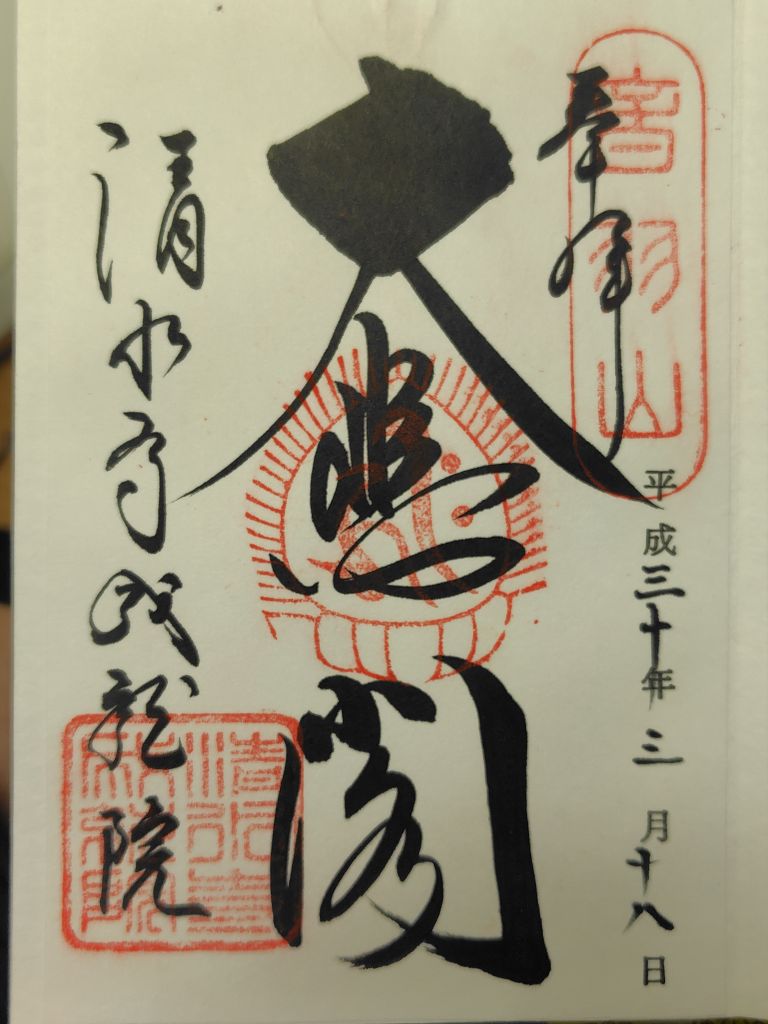 奉拝
音羽山
平成三十年三月十八日
大悲閣
清水寺成就院
清水寺
成就院